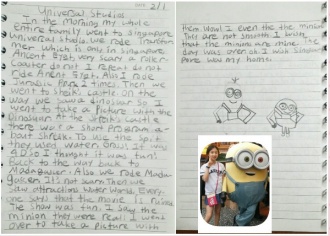 DATE 2/1
Universal Studios
In the morning my whole
entire family went to Singapore
Universal Studio. We rode Transfor
mer which is only in Singapore.
Ancent Egypt very scary a roller
coaster do not I repeat do not
ride Ancent Egypt. Also I rode
Jurassic Park 2 times. Then we
went to Shrek Castle. On the
way we saw a dinosaur so I
went to take a picture with the
Dinosaur. At the Shrek Castle
there was a short program a-
bout Shrek. To use the spit
they used water. Only it was
4D so I thought it was fun.
Back to the way back to
Madagascar. Also we rode Mada
gascar. It's not scary. Then we
saw attractions Water World. Every
one says that the movie is
The show was fun. I saw the
minion they were real. I went
over to take a picture with
them. Wow! I even the the minion
They are not smooth I wish
that the minion are mine. The
day was over so I wish Singa
pore was my home.